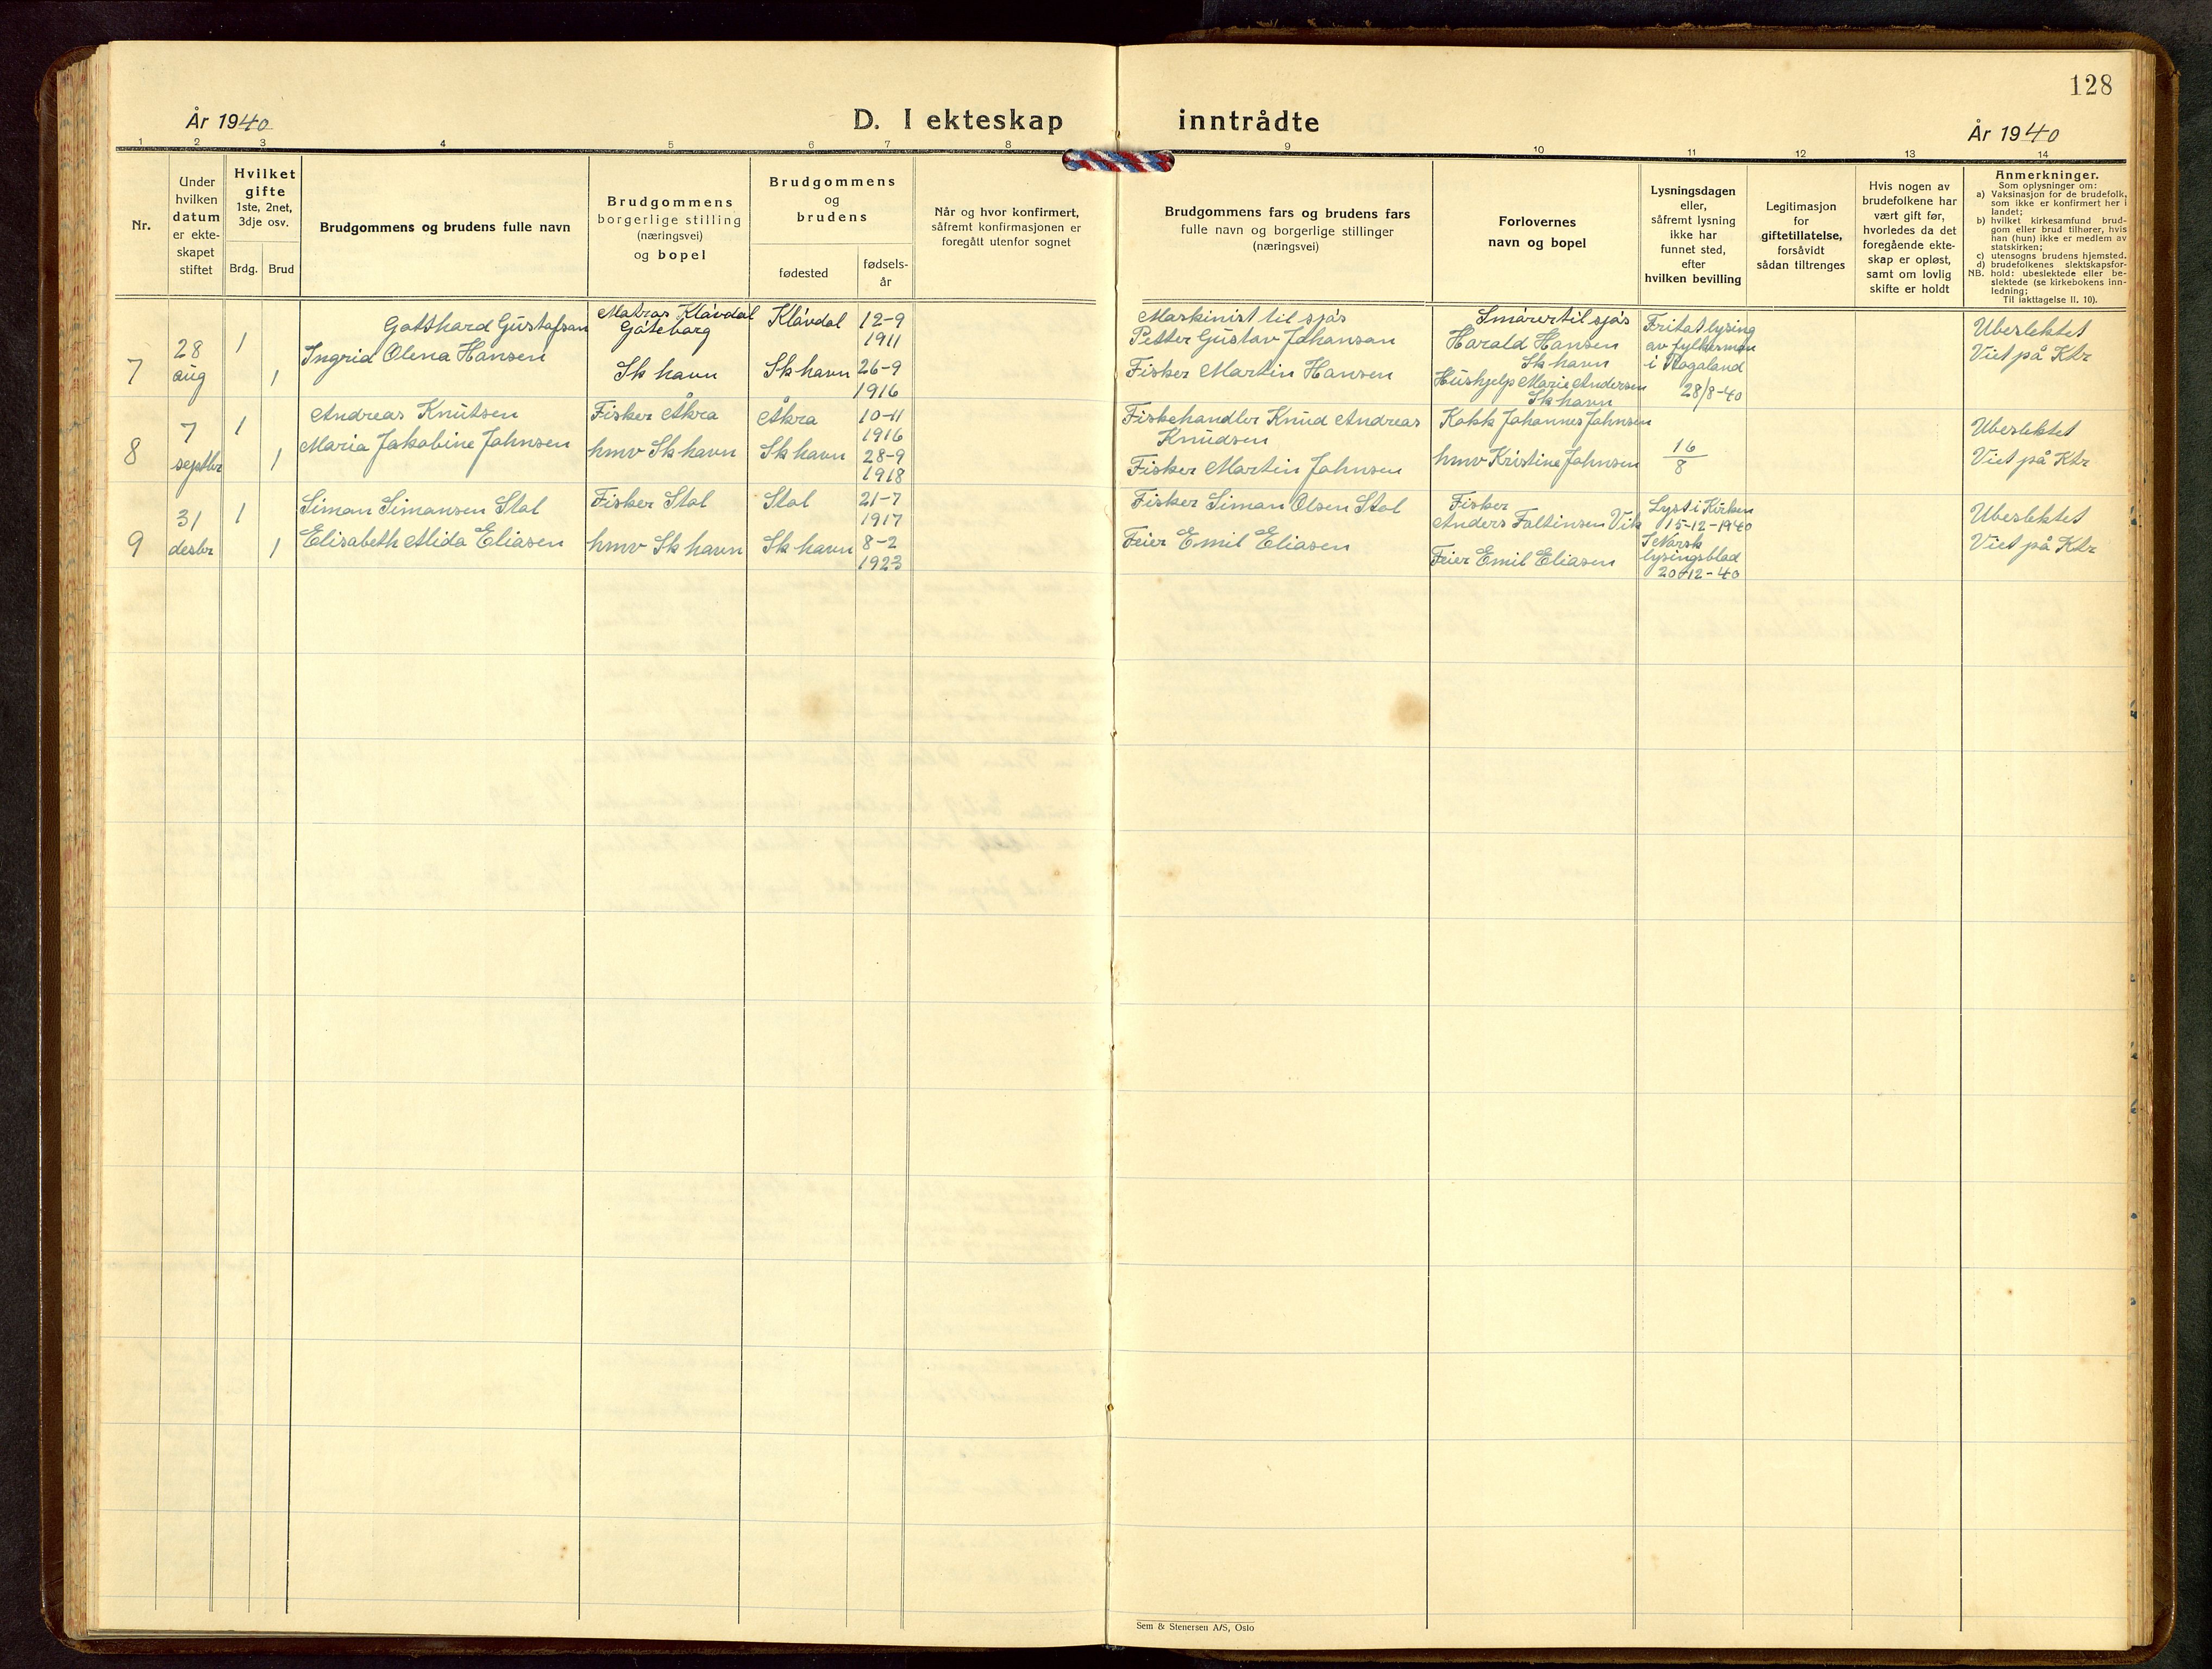 128
År 1940
D. I ekteskap inntrådte
År 1940
1 2 3 4 5 6 7 8 9 10 11 12 13 14
Nr.
Under
hvilken
datum
er ekte-
skapet
stiftet
Hvilket
gifte
1ste, 2net,
3dje osv.
Brdg. Brud
Brudgommens og brudens fulle navn
Brudgommens
borgerlige stilling
(næringsvei)
og bopel
Brudgommens
og
brudens
fødested
fødsels-
år
Når og hvor konfirmert,
såfremt konfirmasjonen er
foregått utenfor sognet
Brudgommens fars og brudens fars
fulle navn og borgerlige stillinger
(næringsvei)
Forlovernes
navn og bopel
Lysningsdagen
eller,
såfremt lysning
ikke har
funnet sted,
efter
hvilken bevilling
Legitimasjon
for
giftetillatelse,
forsåvidt
sådan tiltrenges
Hvis nogen av
brudefolkene har
vært gift før,
hvorledes da det
foregående ekte-
skap er opløst,
samt om lovlig
skifte er holdt
Anmerkninger.
Som oplysninger om:
a) Vaksinasjon for de brudefolk,
som ikke er konfirmert her i
landet;
b) hvilket kirkesamfund brud-
gom eller brud tilhører, hvis
han (hun) ikke er medlem av
statskirken;
c) utensogns brudens hjemsted.
d) brudefolkenes slektskapsfor-
NB. hold: ubeslektede eller be-
slektede (se kirkebokens inn-
ledning;
Til iakttagelse II. 10).
7
28
aug
1
1
Gotthard Gustafson
Ingrid Olena Hansen
Matros Klåvdal
Gøteborg
Sk havn
Klåvdal
Sk havn
12-9
1911
26-9
1916
Maskinist til sjøs
Petter Gustav Johanson
Fisker Martin Hansen
Smører til sjøs
Harald Hansen
Sk havn
Hushjelp Marie Andersen
Sk havn
Fritat lysing
av fylkesman
i Rogaland
28/8-40
Ubeslektet
Viet på Ktr
8
7
septbr
1
1
Andreas Knutsen
Maria Jakobine Johnsen
Fisker Åkra
hmv Sk havn
Åkra
Sk havn
10-11
1916
28-9
1918
Fiskehandler Knud Andreas
Knudsen
Fisker Martin Johnsen
Kokk Johannes Johnsen
hmv Kristine Johnsen
16
8
Ubeslektet
Viet på Ktr
9
31
desbr
1
1
Simon Simonsen Stol
Elisabeth Alida Eliasen
Fisker Stol
hmv Sk havn
Stol
Sk havn
21-7
1917
8-2
1923
Fisker Simon Olsen Stol
Feier Emil Eliasen
Fisker
Anders Foltinsen Vik
Feier Emil Eliasen
Lyst i Kirken
15-12-1940
I Norsk
lysingsblad
20-12-40
Ubeslektet
Viet på Ktr
Sem & Stenersen A/S, Oslo